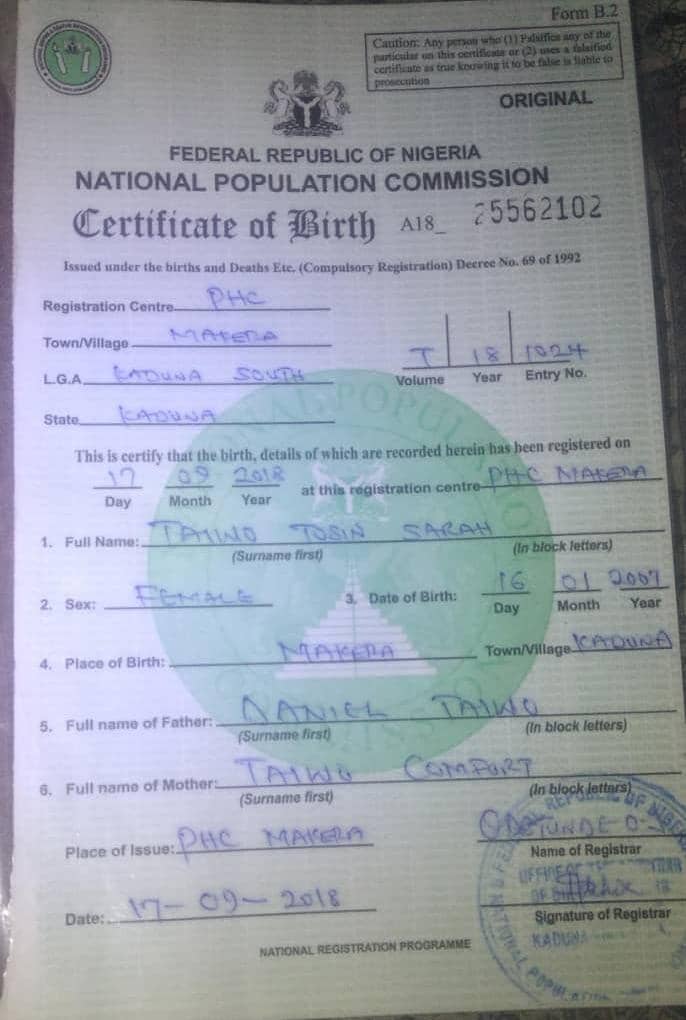 Form B.2
Caution: Any person who (1) Falsifies any of the
particular on this certificate or (2) uses a falsified
certificate as true knowing it to be false is liable to
prosecution
ORIGINAL
FEDERAL REPUBLIC OF NIGERIA
NATIONAL POPULATION COMMISSION
Certificate of Birth A18_ 25562102
Issued under the births and Deaths Etc. (Compulsory Registration) Decree No. 69 of 1992
Registration Centre PHC
Town/Village MAKERA
L.G.A. KADUNA SOUTH
T 18 1024
Volume Year Entry No.
State KADUNA
This is certify that the birth, details of which are recorded herein has been registered on
17 09 2018 at this registration centre PHC MAKERA
Day Month Year
1. Full Name: TAIWO TOSIN SARAH
(Surname first) (In block letters)
2. Sex: FEMALE 3. Date of Birth: 16 01 2007
Day Month Year
4. Place of Birth: MAKERA Town/Village KADUNA
5. Full name of Father: DANIEL TAIWO
(Surname first) (In block letters)
6. Full name of Mother: TAIWO COMFORT
(Surname first) (In block letters)
Place of Issue: PHC MAKERA
TUNDE O
Name of Registrar
Date: 17-09-2018
Signature of Registrar
KADUNA
NATIONAL REGISTRATION PROGRAMME